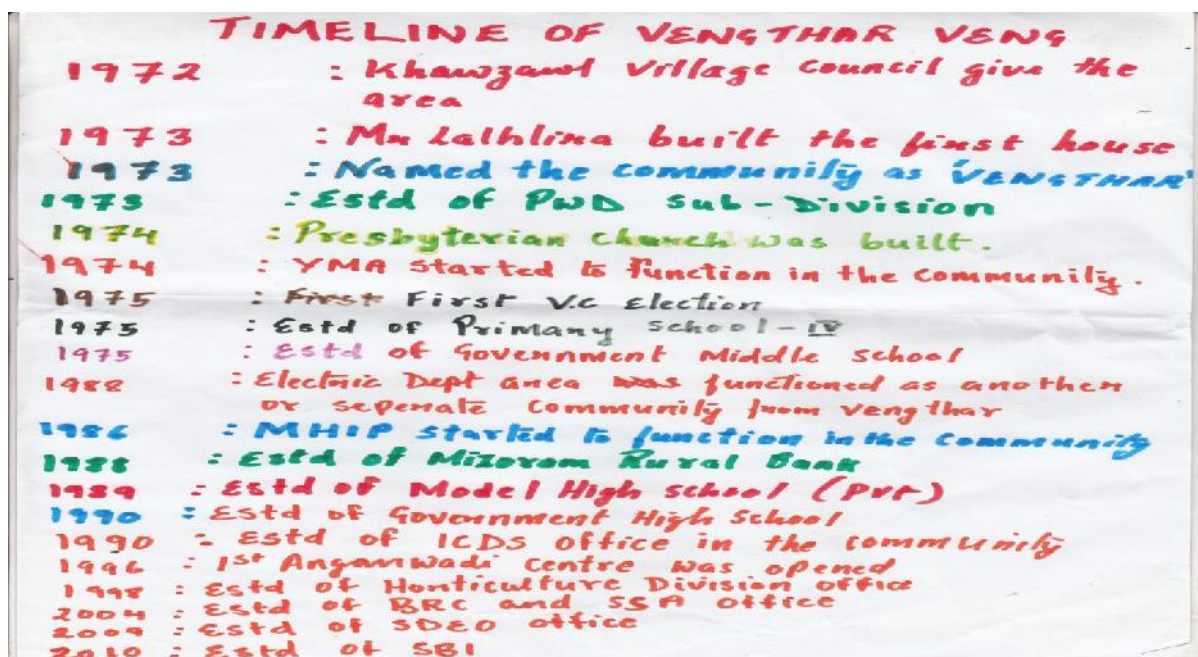 TIMELINE OF VENGTHAR VENG
1972 : Khawzawl Village Council give the
area
1973 : Mr Lalhlira built the first house
1973 : Named the community as 'VENGTHAR'
1973 : Estd of PWD Sub-Division
1974 : Presbyterian church was built.
1974 : YMA started to function in the community.
1975 : First First V.C Election
1975 : Estd of Primary School-IV
1975 : Estd of Government Middle School
1988 : Electric Dept area was functioned as another
or seperate community from vengthar
1986 : MHIP started to function in the community
1988 : Estd of Mizoram Rural Bank
1989 : Estd of Model High school (Pvt)
1990 : Estd of Government High School
1990 : Estd of ICDS office in the community
1996 : 1st Anganwadi centre was opened
1998 : Estd of Horticulture Division office
2004 : Estd of BRC and SSA office
2009 : Estd of SDEO office
2010 : Estd of SBI